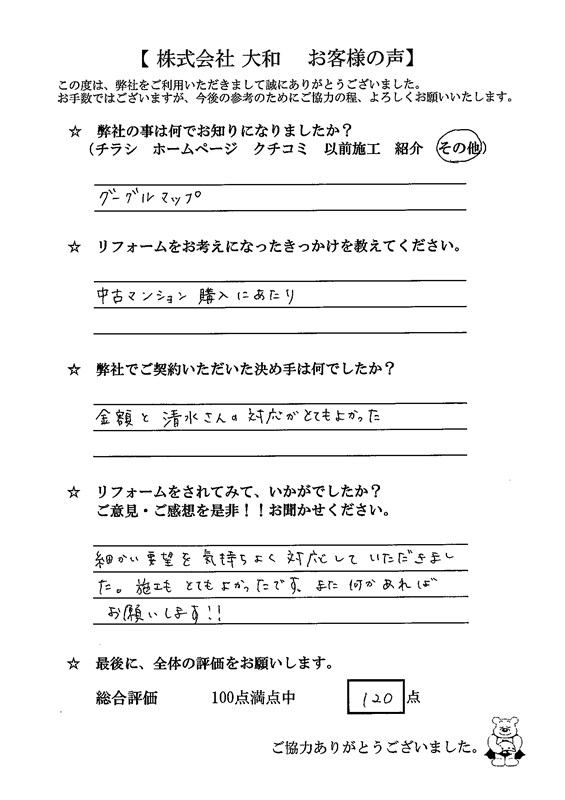 【 株式会社 大和　お客様の声】
この度は、弊社をご利用いただきまして誠にありがとうございました。
お手数ではございますが、今後の参考のためにご協力の程、よろしくお願いいたします。
☆　弊社の事は何でお知りになりましたか？
（チラシ　ホームページ　クチコミ　以前施工　紹介　その他）
グーグルマップ
☆　リフォームをお考えになったきっかけを教えてください。
中古マンション 購入にあたり
☆　弊社でご契約いただいた決め手は何でしたか？
金額と 清水さんの 対応がとてもよかった
☆　リフォームをされてみて、いかがでしたか？
ご意見・ご感想を是非！！お聞かせください。
細かい要望を 気持ちよく 対応して いただきまし
た。施工も とてもよかったです、また 何かあれば
お願いします!!
☆　最後に、全体の評価をお願いします。
総合評価　100点満点中　120 点
ご協力ありがとうございました。